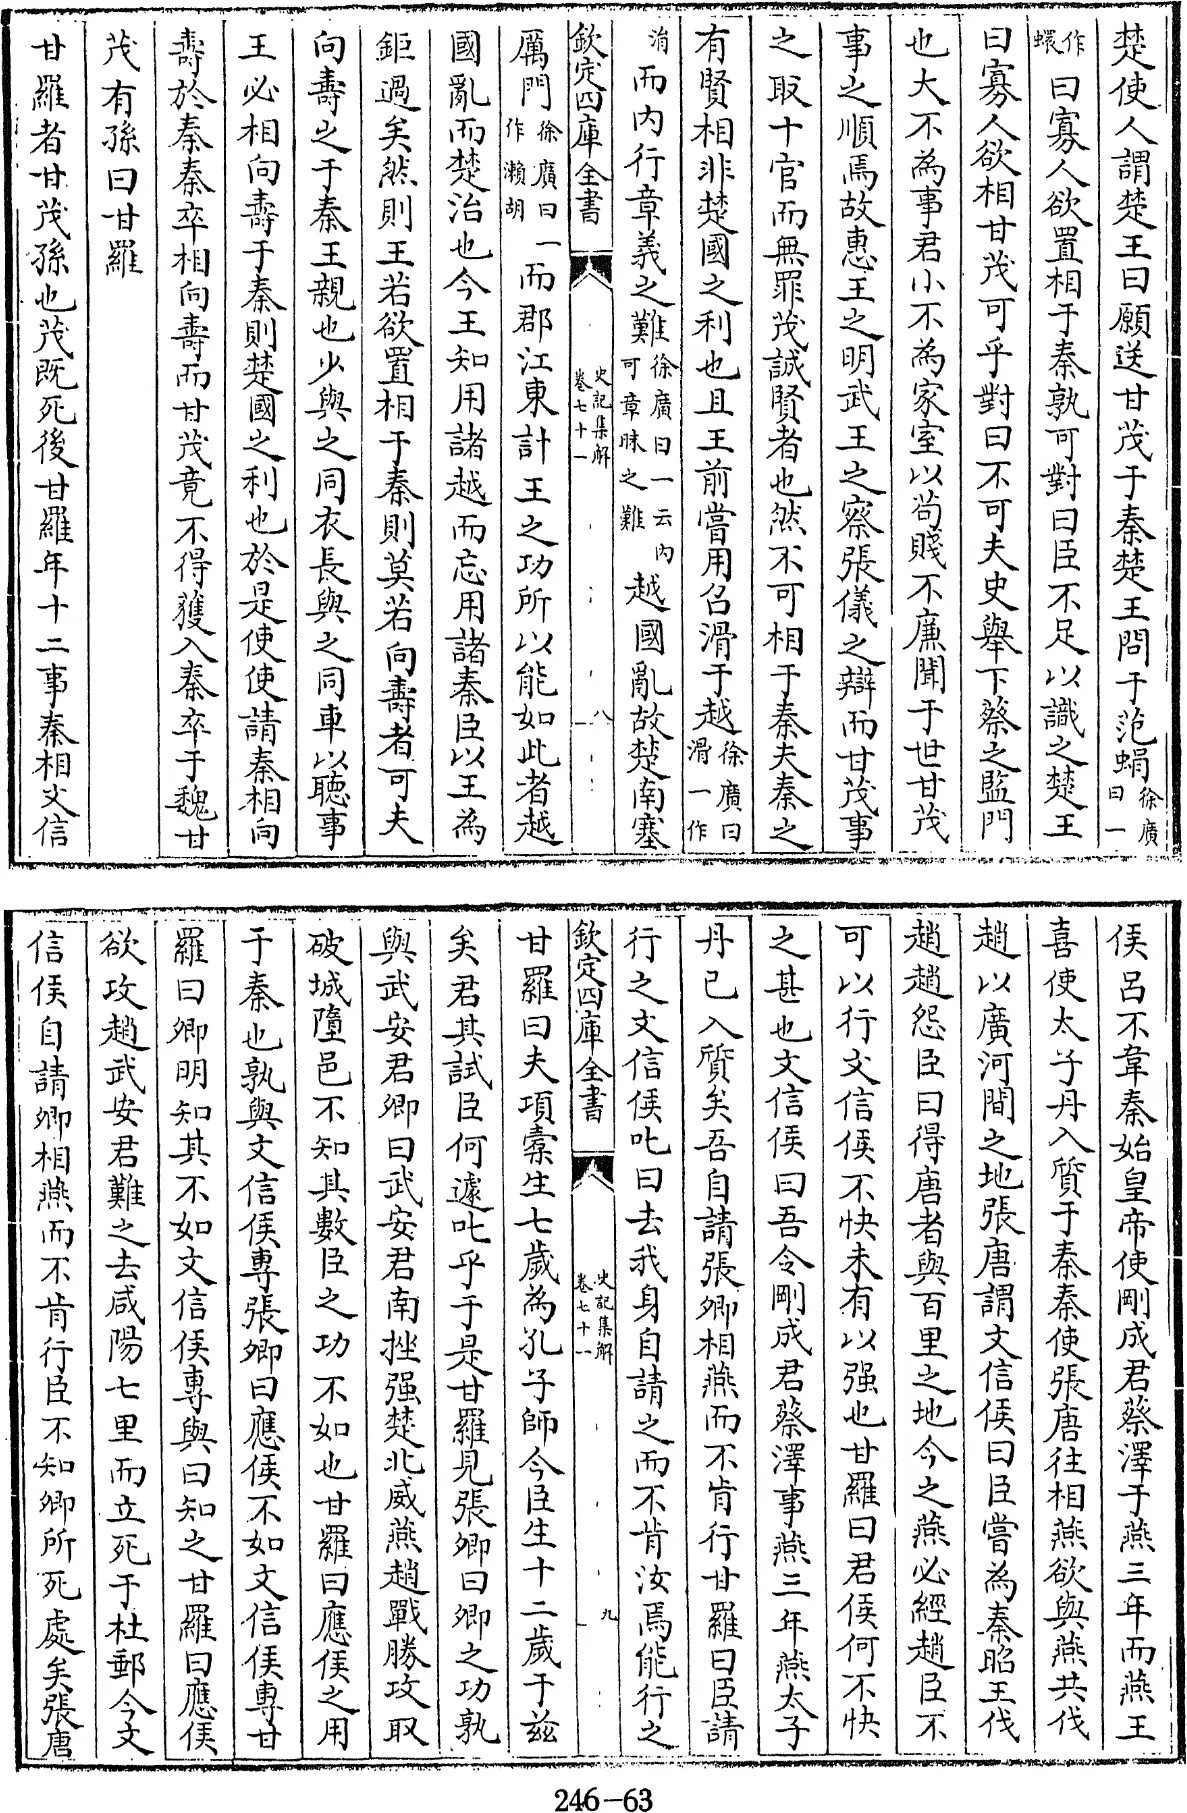 楚使人謂楚王曰願送甘茂于秦楚王問于范蜎徐廣曰一
作蠉曰寡人欲置相于秦孰可對曰臣不足以識之楚王
曰寡人欲相甘茂可乎對曰不可夫史舉下蔡之監門
也大不為事君小不為家室以苟賤不廉聞于世甘茂
事之順焉故惠王之明武王之察張儀之辯而甘茂事
之取十官而無罪茂誠賢者也然不可相于秦夫秦之
有賢相非楚國之利也且王前嘗用召滑于越徐廣曰滑一作
涓而内行章義之難徐廣曰一云内可章昧之難越國亂故楚南塞
欽定四庫全書
史記集解
卷七十一
八
厲門徐廣曰一作瀨胡而郡江東計王之功所以能如此者越
國亂而楚治也今王知用諸越而忘用諸秦臣以王為
鉅過矣然則王若欲置相于秦則莫若向壽者可夫
向壽之于秦王親也少與之同衣長與之同車以聽事
王必相向壽于秦則楚國之利也於是使使請秦相向
壽於秦秦卒相向壽而甘茂竟不得復入秦卒于魏甘
茂有孫曰甘羅
甘羅者甘茂孫也茂既死後甘羅年十二事秦相文信
侯呂不韋秦始皇帝使剛成君蔡澤于燕三年而燕王
喜使太子丹入質于秦秦使張唐往相燕欲與燕共伐
趙以廣河間之地張唐謂文信侯曰臣嘗為秦昭王伐
趙趙怨臣曰得唐者與百里之地今之燕必經趙臣不
可以行文信侯不快未有以强也甘羅曰君侯何不快
之甚也文信侯曰吾令剛成君蔡澤事燕三年燕太子
丹已入質矣吾自請張卿相燕而不肯行甘羅曰臣請
行之文信侯叱曰去我身自請之而不肯汝焉能行之
欽定四庫全書
史記集解
卷七十一
九
甘羅曰夫項橐生七歲為孔子師今臣生十二歲于兹
矣君其試臣何遽叱乎于是甘羅見張卿曰卿之功孰
與武安君卿曰武安君南挫强楚北威燕趙戰勝攻取
破城隳邑不知其數臣之功不如也甘羅曰應侯之用
于秦也孰與文信侯專張卿曰應侯不如文信侯專甘
羅曰卿明知其不如文信侯專與曰知之甘羅曰應侯
欲攻趙武安君難之去咸陽七里而立死于杜郵今文
信侯自請卿相燕而不肯行臣不知卿所死處矣張唐
246-63